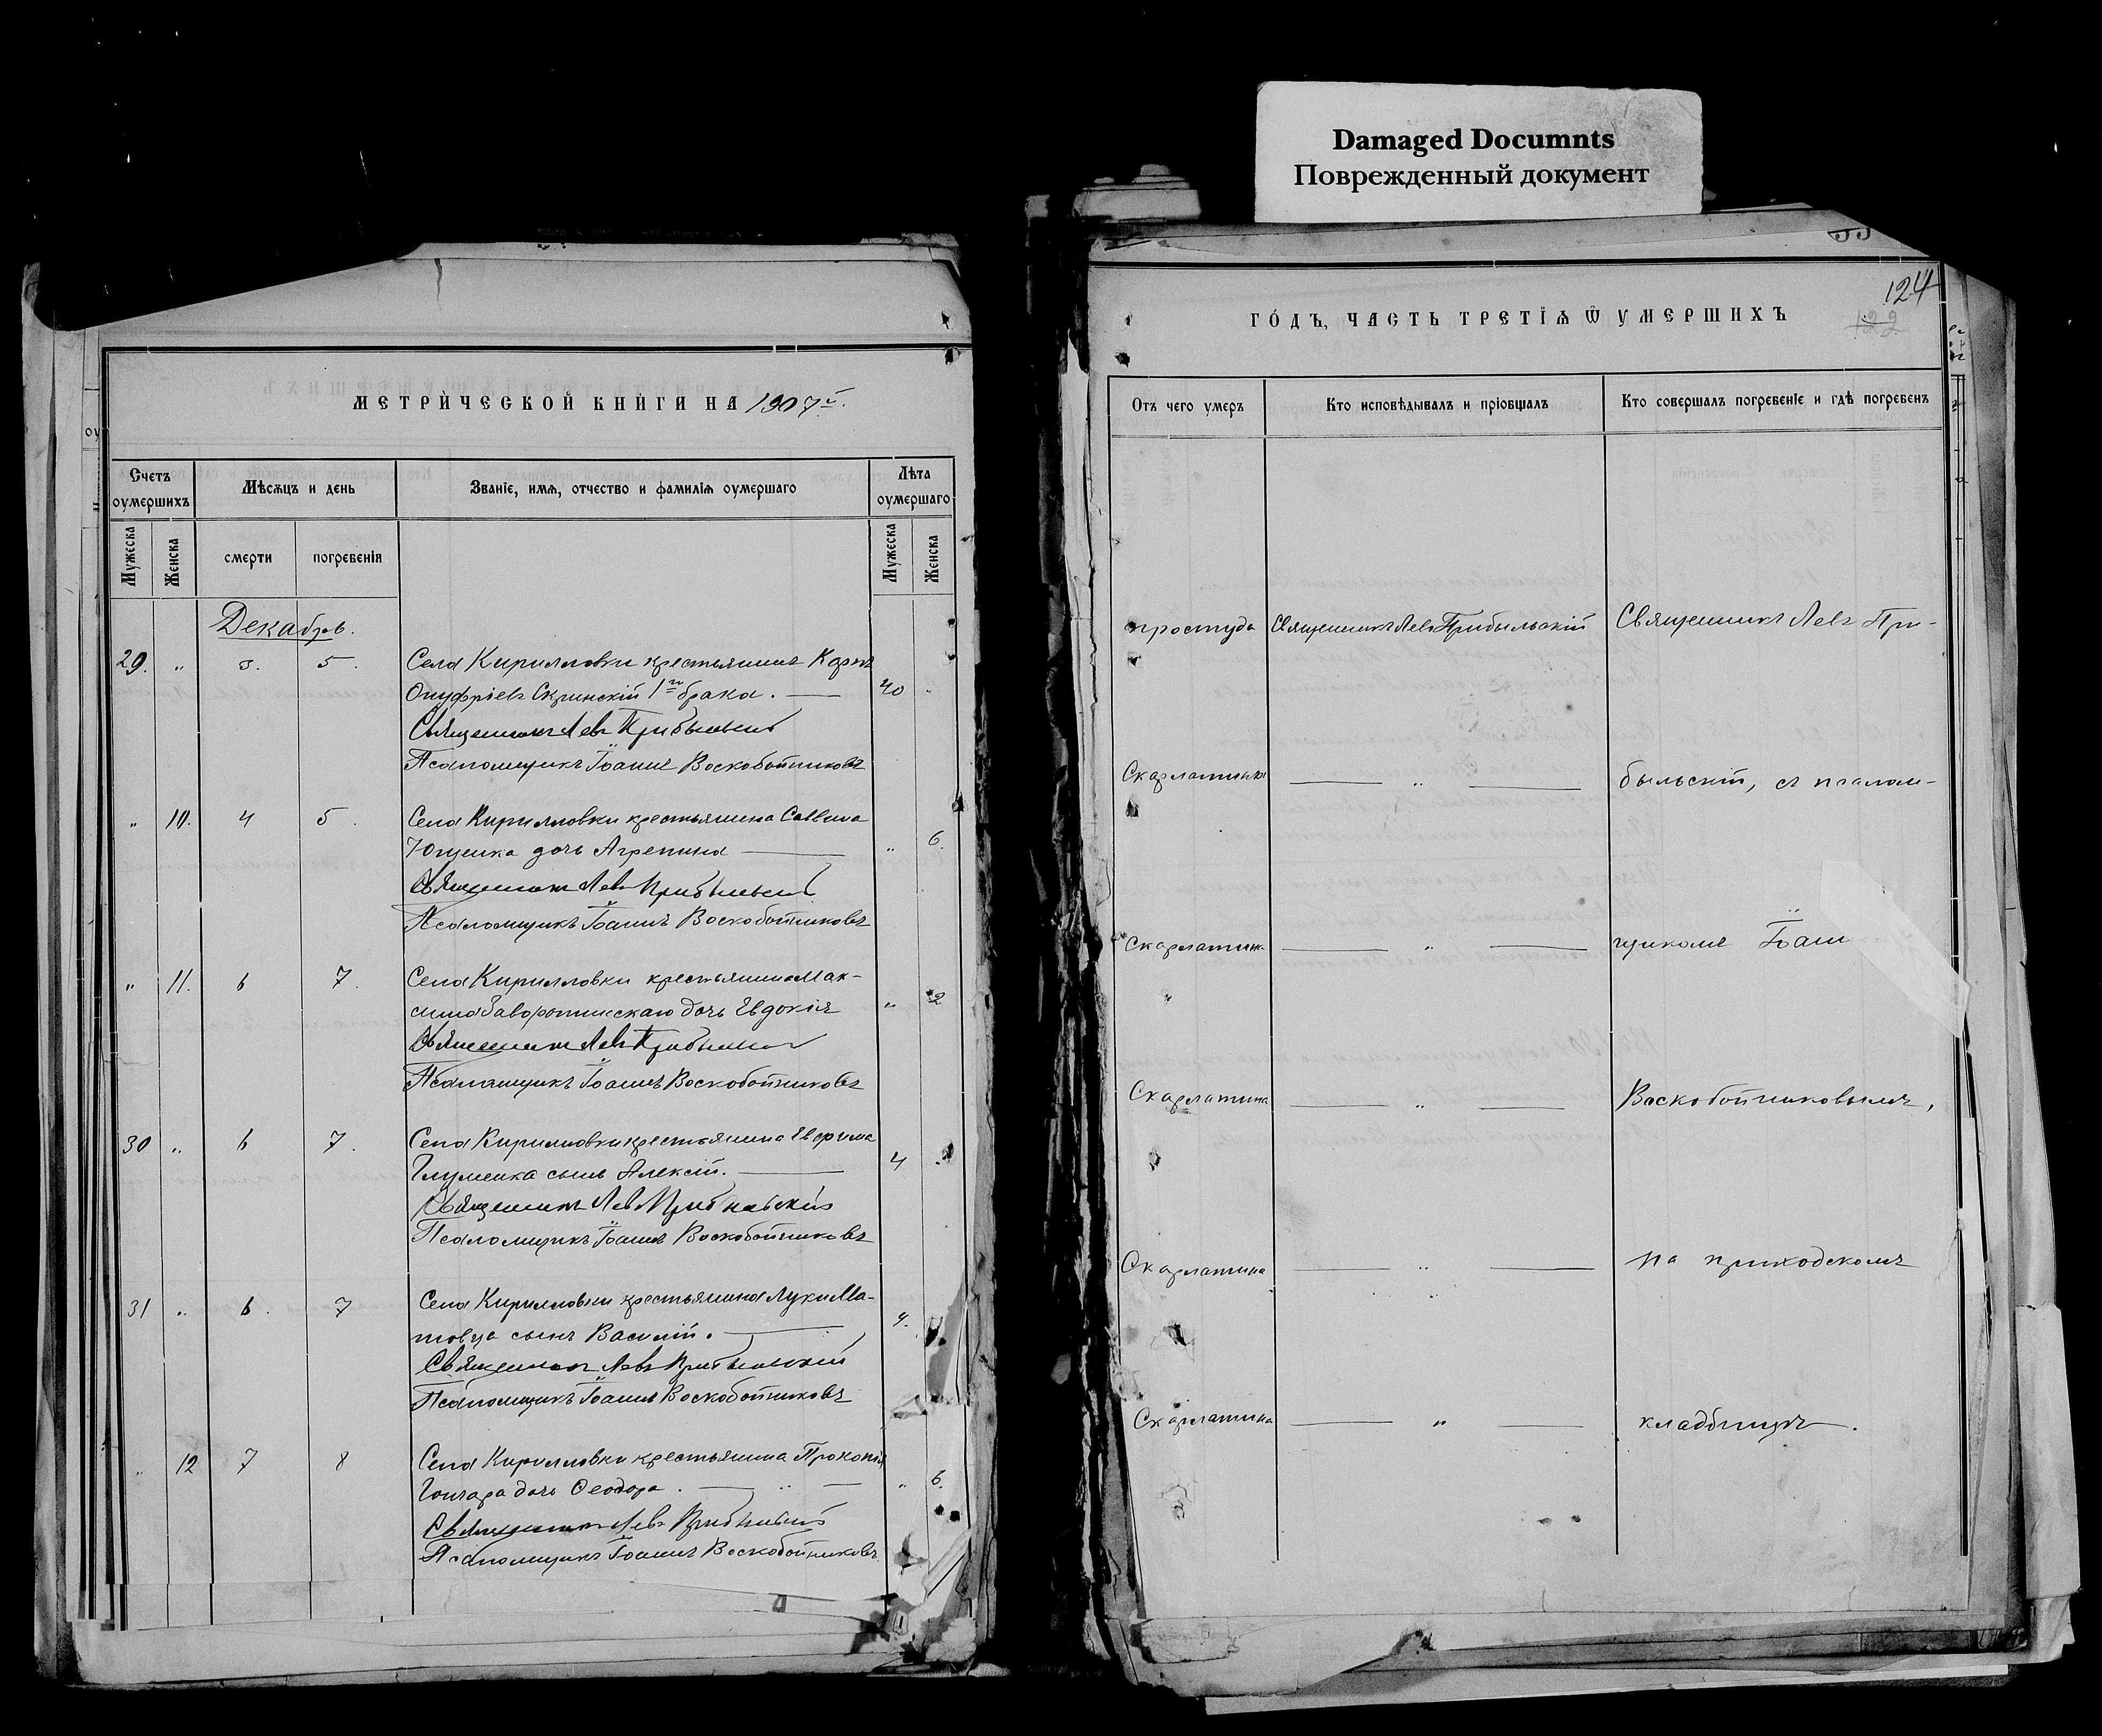 Damaged Documnts
Поврежденный документ
МЕТРИЧЕСКОЙ КНИГИ НА 1907й.
Счетъ оумершихъ
Мѣсяцъ и день
Званіе, имя, отчество и фамилія оумершаго
Лѣта оумершаго
Мужеска
Женска
смерти
погребенія
Мужеска
Женска
Декабрь.
29. " 3. 5. Села Кирилловки крестьянинъ Карпъ
Онуфріевъ Скринскій 1го брака. 40 "
Священникъ Левъ Прибыльскій
Псаломщикъ Іоаннъ Воскобойниковъ
" 10. 4 5. Села Кирилловки крестьянина Саввина
Ющенка дочь Агрепина " 6.
Священникъ Левъ Прибыльскій
Псаломщикъ Іоаннъ Воскобойниковъ
" 11. 6 7. Села Кирилловки крестьянина Мак-
сима Заворотинскаго дочь Евдокія " 2
Священникъ Левъ Прибыльскій
Псаломщикъ Іоаннъ Воскобойниковъ
30 " 6 7. Села Кирилловки крестьянина Евфима
Глущенка сынъ Алексій. 4 "
Священникъ Левъ Прибыльскій
Псаломщикъ Іоаннъ Воскобойниковъ
31 " 6. 7 Села Кирилловки крестьянина Луки Ма-
товца сынъ Василій. 4.
Священникъ Левъ Прибыльскій
Псаломщикъ Іоаннъ Воскобойниковъ
" 12 7 8 Села Кирилловки крестьянина Прокопія
Гончара дочь Ѳеодора. " " 6.
Священникъ Левъ Прибыльскій
Псаломщикъ Іоаннъ Воскобойниковъ
124
122
ГОДЪ, ЧАСТЬ ТРЕТІЯ Ѿ УМЕРШИХЪ
Отъ чего умеръ
Кто исповѣдывалъ и пріобщалъ
Кто совершалъ погребеніе и гдѣ погребенъ
простуда Священникъ Левъ Прибыльскій Священникъ Левъ При-
Скарлатина " быльскій, съ псалом-
Скарлатина " щикомъ Іоан
Скарлатина " Воскобойниковымъ,
Скарлатина " на приходскомъ
Скарлатина " кладбищѣ.